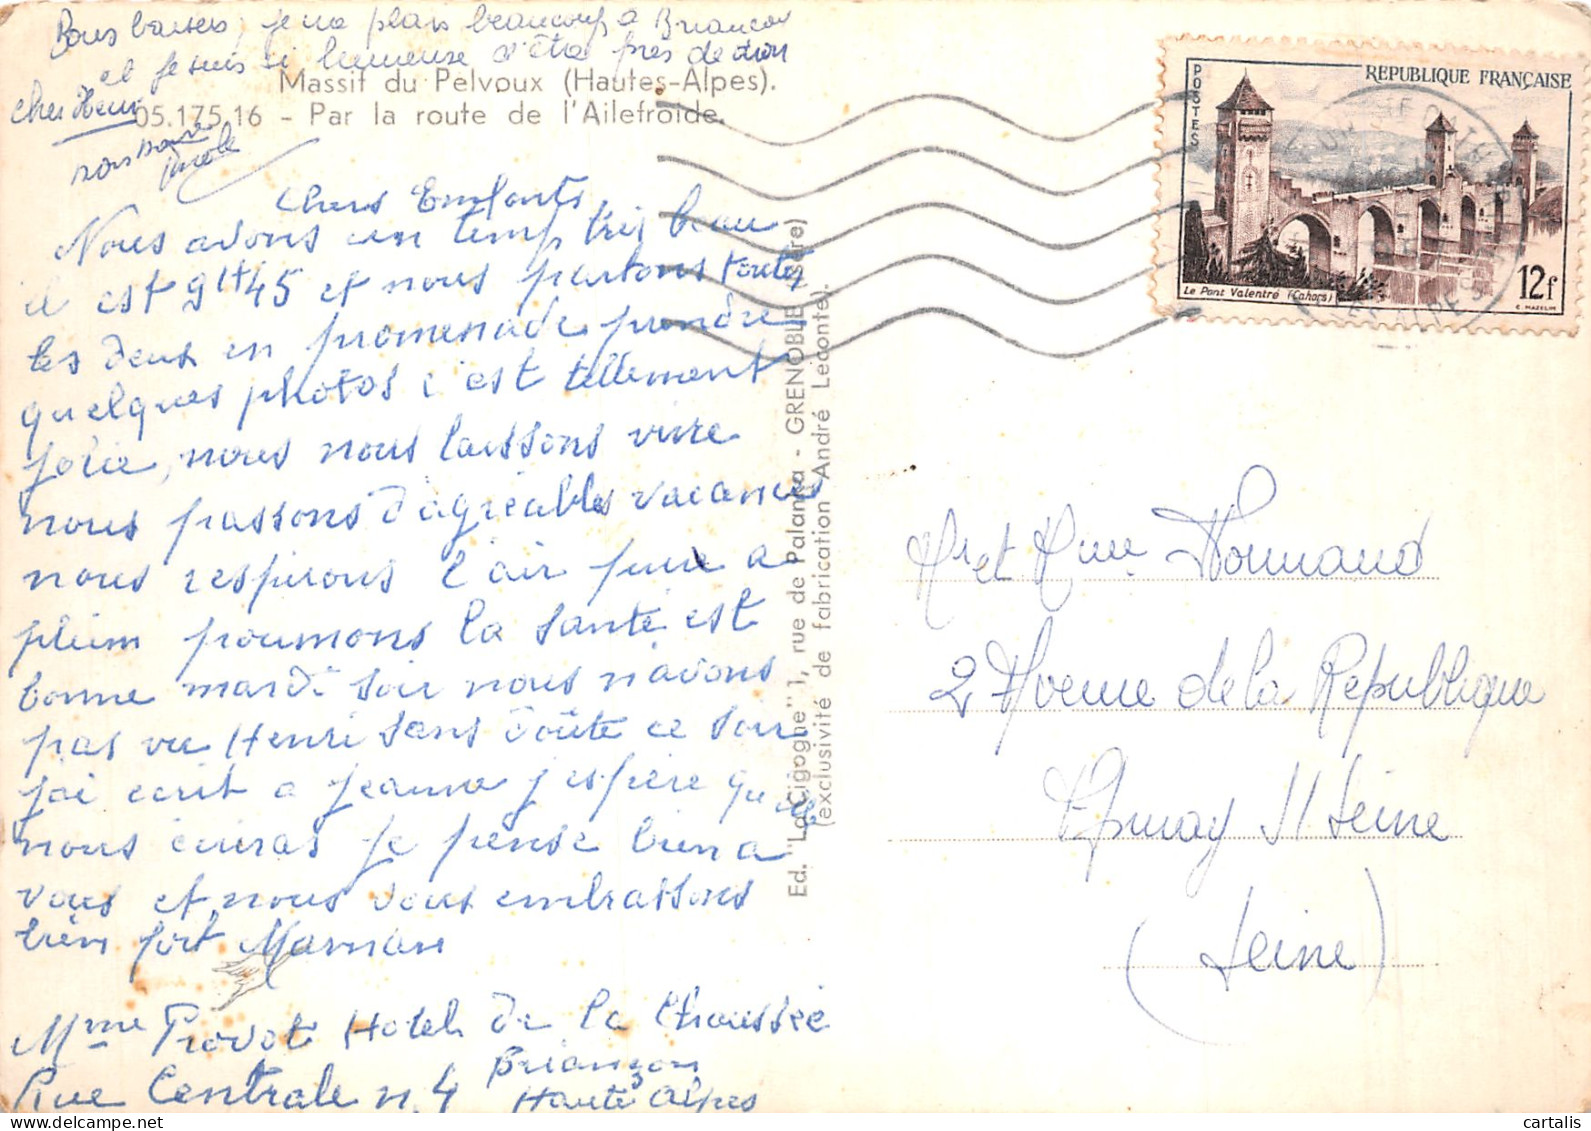 Bons baisers, je me plais beaucoup à Briançon
et je suis si heureuse d'être près de mon
cher Henri
Massif du Pelvoux (Hautes-Alpes).
05.175.16 - Par la route de l'Ailefroide.
Chers Enfants,
Nous avons un temp très beau
il est 9H45 et nous partons toutes
les deux en promenade prendre
quelques photos c'est tellement
jolie, nous nous laissons vivre
nous passons d'agréables vacances
nous respirons l'air pure a
plein poumons la santé est
bonne mardi soir nous n'avons
pas vu Henri sans doûte ce soir
j'ai ecrit a Jeanne j'espère qu'elle
nous écriras je pense bien a
vous et nous vous embrassons
bien fort Maman
Mme Provot Hotel de la Chaussée
Rue Centrale n. 4 Briançon
Haute Alpes
Ed. "La Cigogne" 1, rue de Palanka - GRENOBLE (Isère)
(exclusivité de fabrication André Leconte).
POSTES
REPUBLIQUE FRANÇAISE
Le Pont Valentré (Cahors)
12f
C. MAZELIN
Mr et Mme Normand
2 Avenue de la République
Epinay S/ Seine
(Seine)
cartalis